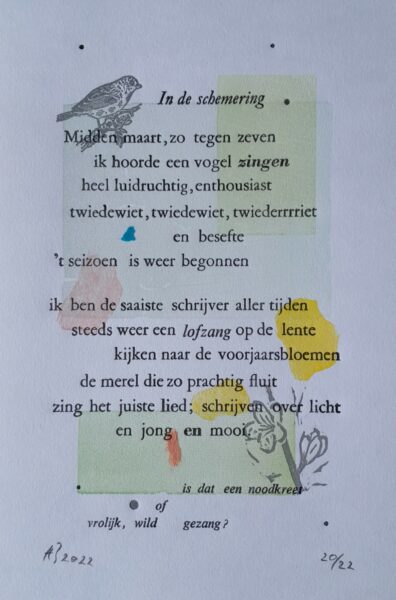 In de schemering
Midden maart, zo tegen zeven
ik hoorde een vogel zingen
heel luidruchtig, enthousiast
twiedewiet, twiedewiet, twiederrrriet
en besefte
't seizoen is weer begonnen
ik ben de saaiste schrijver aller tijden
steeds weer een lofzang op de lente
kijken naar de voorjaarsbloemen
de merel die zo prachtig fluit
zing het juiste lied; schrijven over licht
en jong en mooi.
is dat een noodkreet
of
vrolijk, wild gezang?
2022
20/22